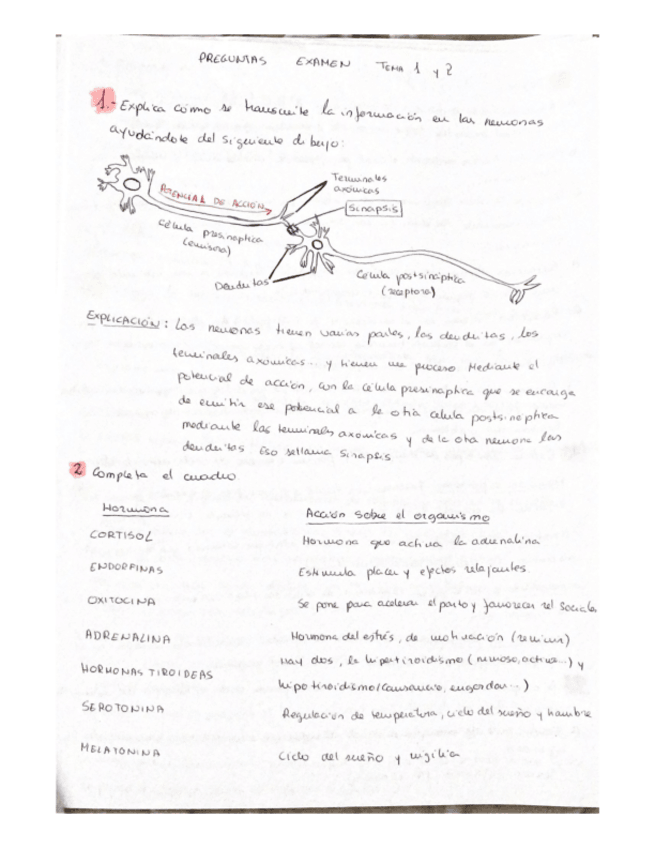 PREGUNTAS EXAMEN TEMA 1 y 2
1.- Explica cómo se transmite la información en las neuronas
ayudándote del siguiente dibujo:
Terminales
axómicas
POTENCIAL DE ACCIÓN
Sinapsis
Célula presinaptica
(emisora)
Dendritas
Célula postsináptica
(receptora)
EXPLICACIÓN: Las neuronas tienen varias partes, las dendritas, los
terminales axómicas... y tienen un proceso. Mediante el
potencial de acción, con la célula presinaptica que se encarga
de emitir ese potencial a la otra célula postsinaptica
mediante las terminales axomicas y de la otra neurona las
dendritas Eso se llama Sinapsis
2 Completa el cuadro
Hormona Acción sobre el organismo
CORTISOL Hormona que activa la adrenalina
ENDORFINAS Estimula placer y efectos relajantes.
OXITOCINA Se pone para acelerar el parto y favorecer rel Sociales
ADRENALINA Hormona del estrés, de motivación
HORMONAS TIROIDEAS Hay dos, la hipertiroidismo (nervioso, activo...) y
hipotiroidismo (cansancio, engordar...)
SEROTONINA Regulación de temperatura, ciclo del sueño y hambre
MELATONINA Ciclo del sueño y vigilia